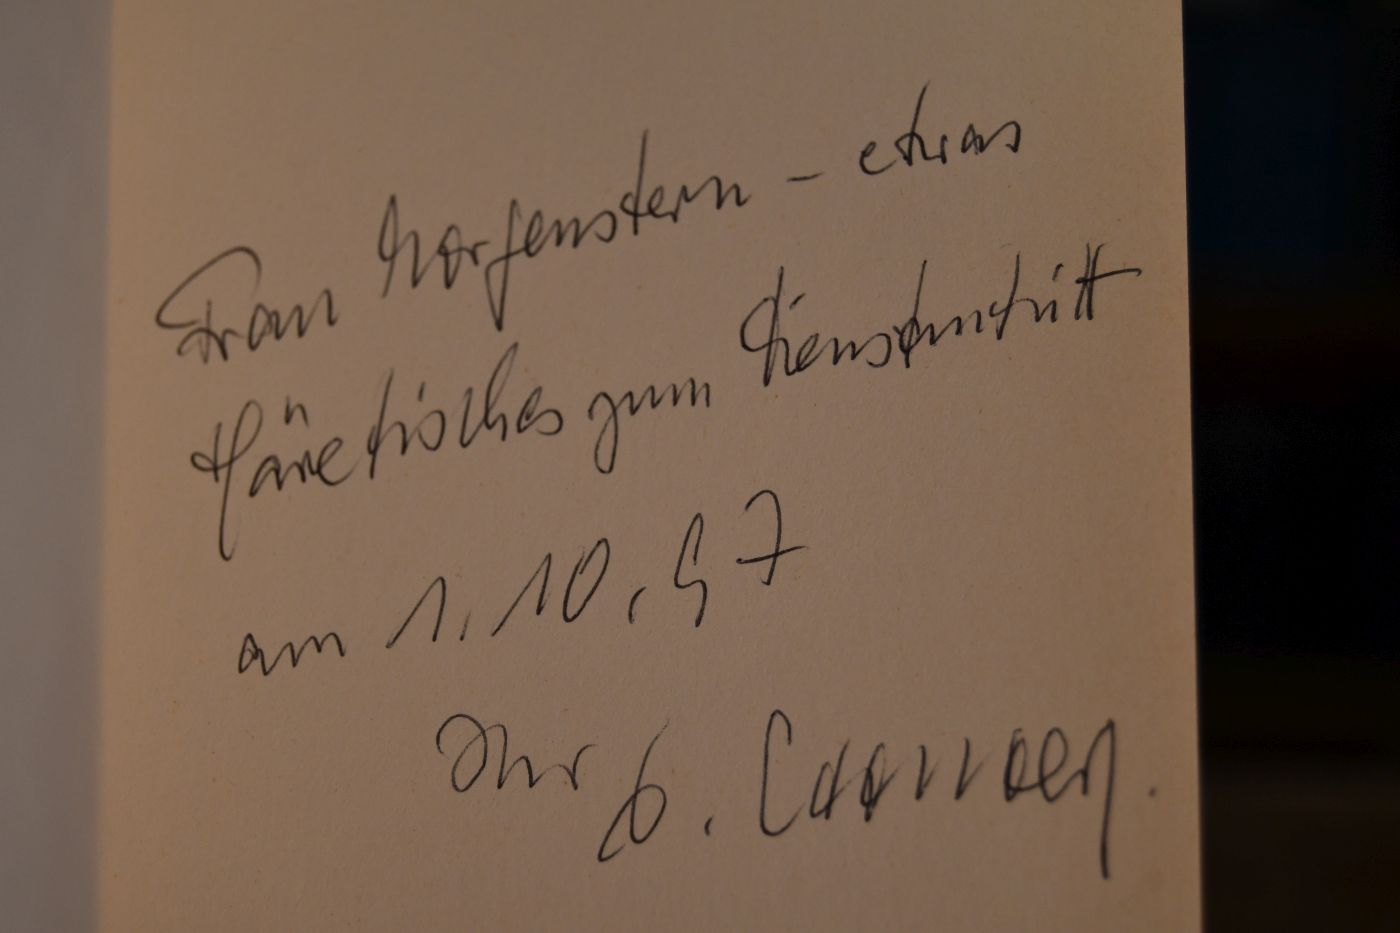 Frau Morgenstern – etwas
Häretisches zum Dienstantritt
am 1.10.97
Ihr G.